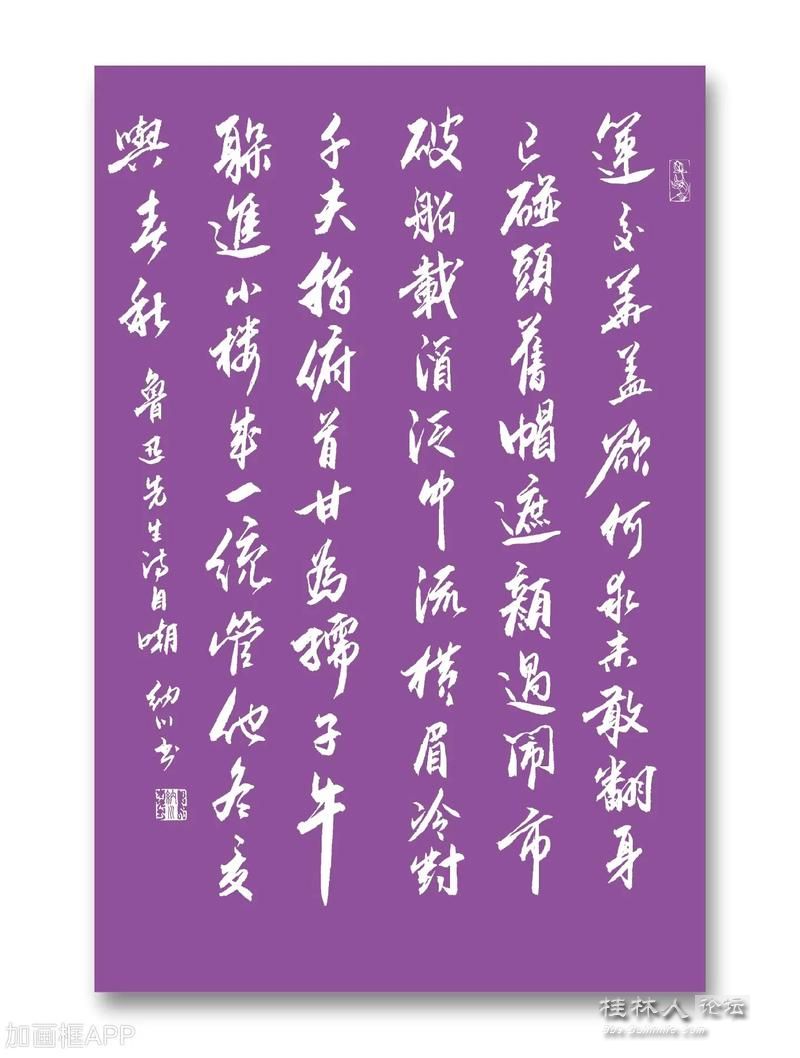 運交華盖欲何求未敢翻身
已碰頭舊帽遮顏過鬧市
破船載酒泛中流横眉冷對
千夫指俯首甘為孺子牛
躲進小楼成一統管他冬夏
與春秋
魯迅先生诗自嘲 纳川书
加画框APP
桂林人论坛